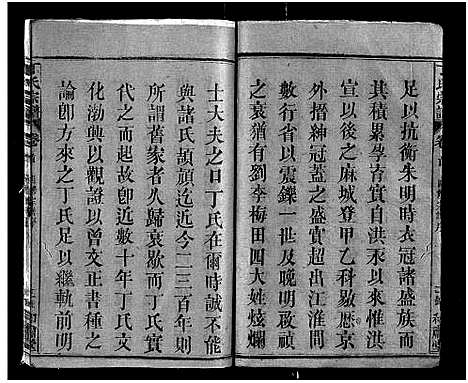 足以抗衡朱明時衣冠諸盛族而
其積累孕育實自洪永以來惟洪
宣以後之麻城登甲乙科敭歷京
外搢紳冠蓋之盛實超出江淮間
數行省以震鑠一世及晚明世族
之衰猶有劉李梅田四大姓炫爛
士大夫之口丁氏在爾時誠不能
與諸氏頡頏迄近今二三百年則
所謂舊家者人歸衰歇而丁氏實
代之而起卽近數十年丁氏文
化渤興以觀證以曾文正書種之
論卽方來之丁氏足以繼軌前明
氏宗譜
卷首